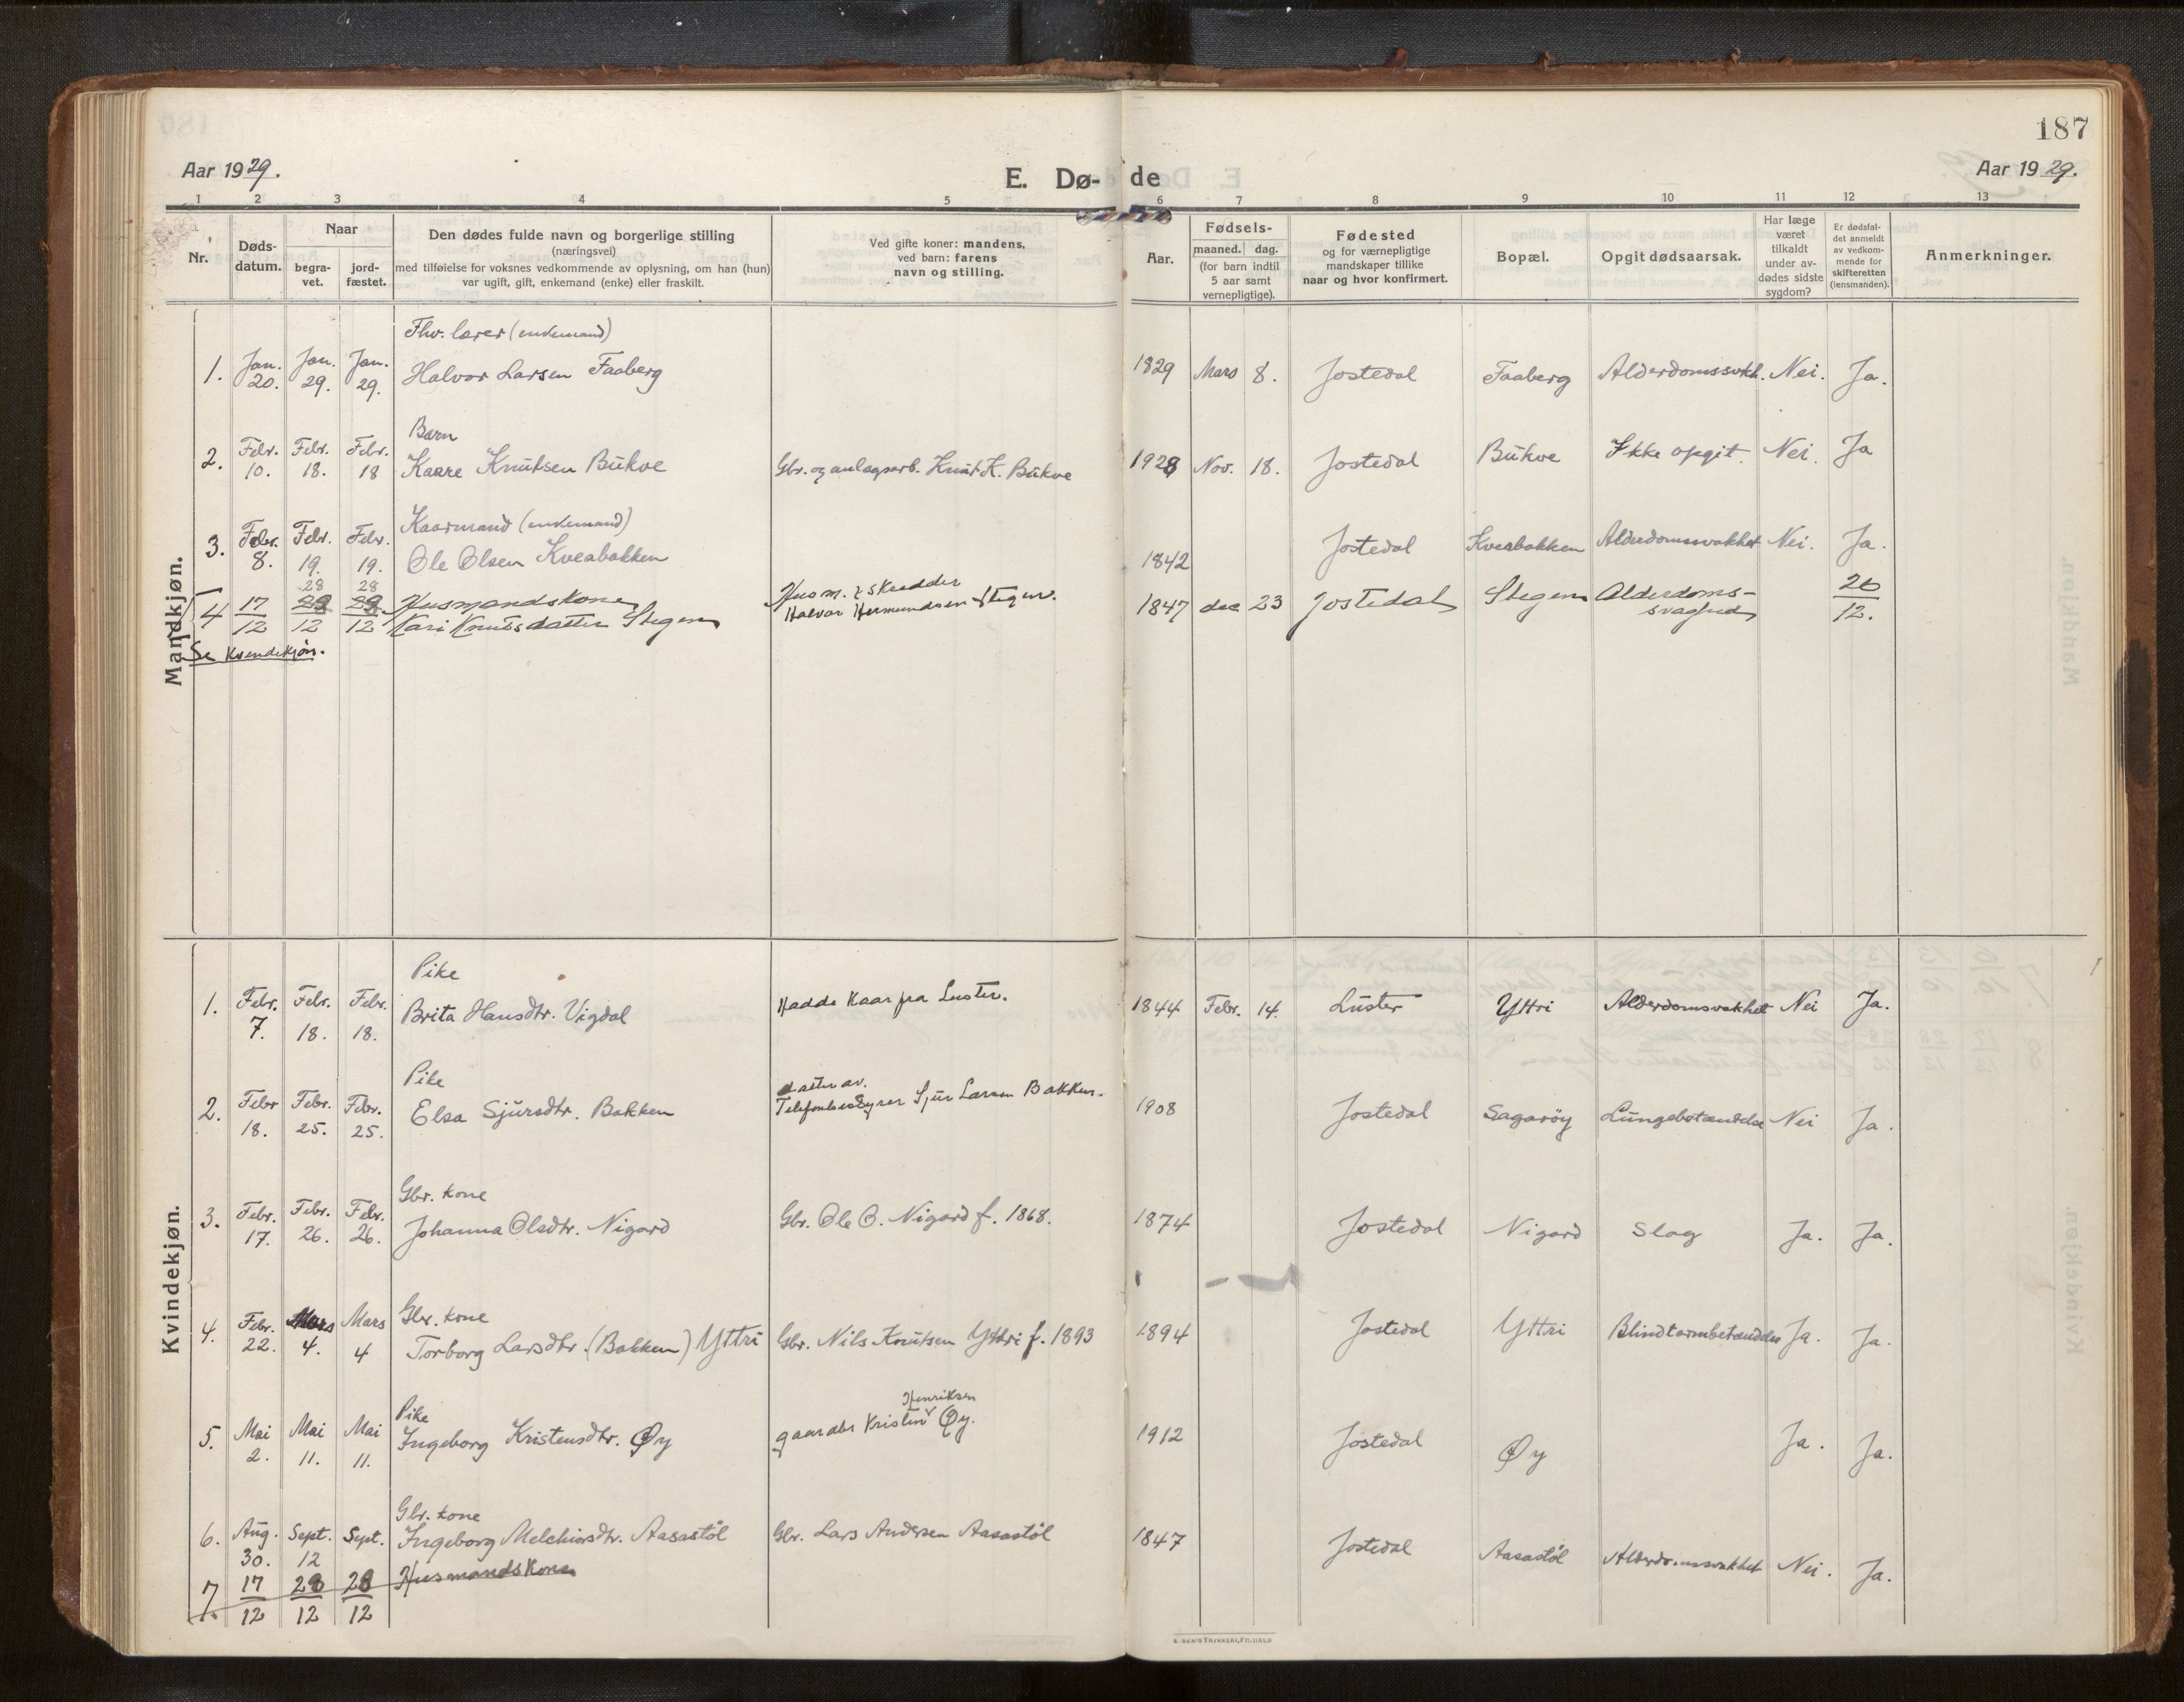 187
Aar 1929.
E. Dø- de
Aar 1929.
1 2 3 4 5 6 7 8 9 10 11 12 13
Nr.
Døds-
datum.
Naar
begra-
vet.
jord-
fæstet.
Den dødes fulde navn og borgerlige stilling
(næringsvei)
med tilføielse for voksnes vedkommende av oplysning, om han (hun)
var ugift, gift, enkemand (enke) eller fraskilt.
Ved gifte koner: mandens,
ved barn: farens
navn og stilling.
Aar.
Fødsels-
maaned. dag.
(for barn indtil
5 aar samt
vernepligtige).
Fødested
og for værnepligtige
mandskaper tillike
naar og hvor konfirmert.
Bopæl.
Opgit dødsaarsak.
Har læge
været
tilkaldt
under av-
dødes sidste
sygdom?
Er dødsfal-
det anmeldt
av vedkom-
mende for
skifteretten
(lensmanden).
Anmerkninger.
Mandkjøn.
Fhv. lærer (enkemand)
1. Jan. 20. Jan. 29. Jan. 29. Halvor Larsen Faaberg 1829 Mars 8. Jostedal Faaberg Alderdomssvkh. Nei. Ja.
Barn
2. Febr. 10. Febr. 18. Febr. 18 Kaare Knutsen Bukve Gbr. og anlagsarb. Knut K. Bukve 1928 Nov. 18. Jostedal Bukve Ikke opgit. Nei. Ja
Kaarmand (enkemand)
3. Febr. 8. Febr. 19. Febr. 19. Ole Olsen Kveabakken 1842 Jostedal Kveabakken Alderdomssvakhet Nei. Ja.
28 28
4 17/12 28/12 28/12 Husmandskone Husm. & skredder 1847 dec 23 Jostedal Stegen Alderdoms- 20/12.
Kari Knutsdatter Stegen Halvor Hermundsen Stegen. svaghed
Se Kvendekjøn.
Kvindekjøn.
Pike
1. Febr. 7. Febr. 18. Febr. 18. Brita Hansdtr. Vigdal Hadde Kaar fra Luster. 1844 Febr. 14. Luster Yttri Alderdomsvakhet Nei Ja.
Pike datter av.
2. Febr 18. Febr. 25. Febr. 25. Elsa Sjursdtr. Bakken Telefonbestyrer Sjur Larsen Bakken. 1908 Jostedal Sagarøy Lungebetændelse Nei Ja.
Gbr. kone
3. Febr. 17. Febr. 26. Febr. 26. Johanna Olsdtr. Nigard Gbr. Ole O. Nigard f. 1868. 1874 Jostedal Nigard Slag Ja. Ja.
Gbr. kone
4. Febr. 22. Mars 4. Mars 4 Torborg Larsdtr. (Bakken) Yttri Gbr. Nils Knutsen Yttri f. 1893 1894 Jostedal Yttri Blindtarmbetændelse Ja. Ja.
Pike Henriksen
5. Mai 2. Mai 11. Mai 11. Ingeborg Kristensdtr. Øy gaardbr Kristen Øy. 1912 Jostedal Øy Ja. Ja.
Gbr. kone
6. Aug. 30. Sept. 12 Sept. Ingeborg Melchiorsdtr. Aasastøl Gbr. Lars Andersen Aasastøl 1847 Jostedal Aasastøl Alderdomssvakhet Nei. Ja.
7. 17/12 28/12 28/12 Husmandskone